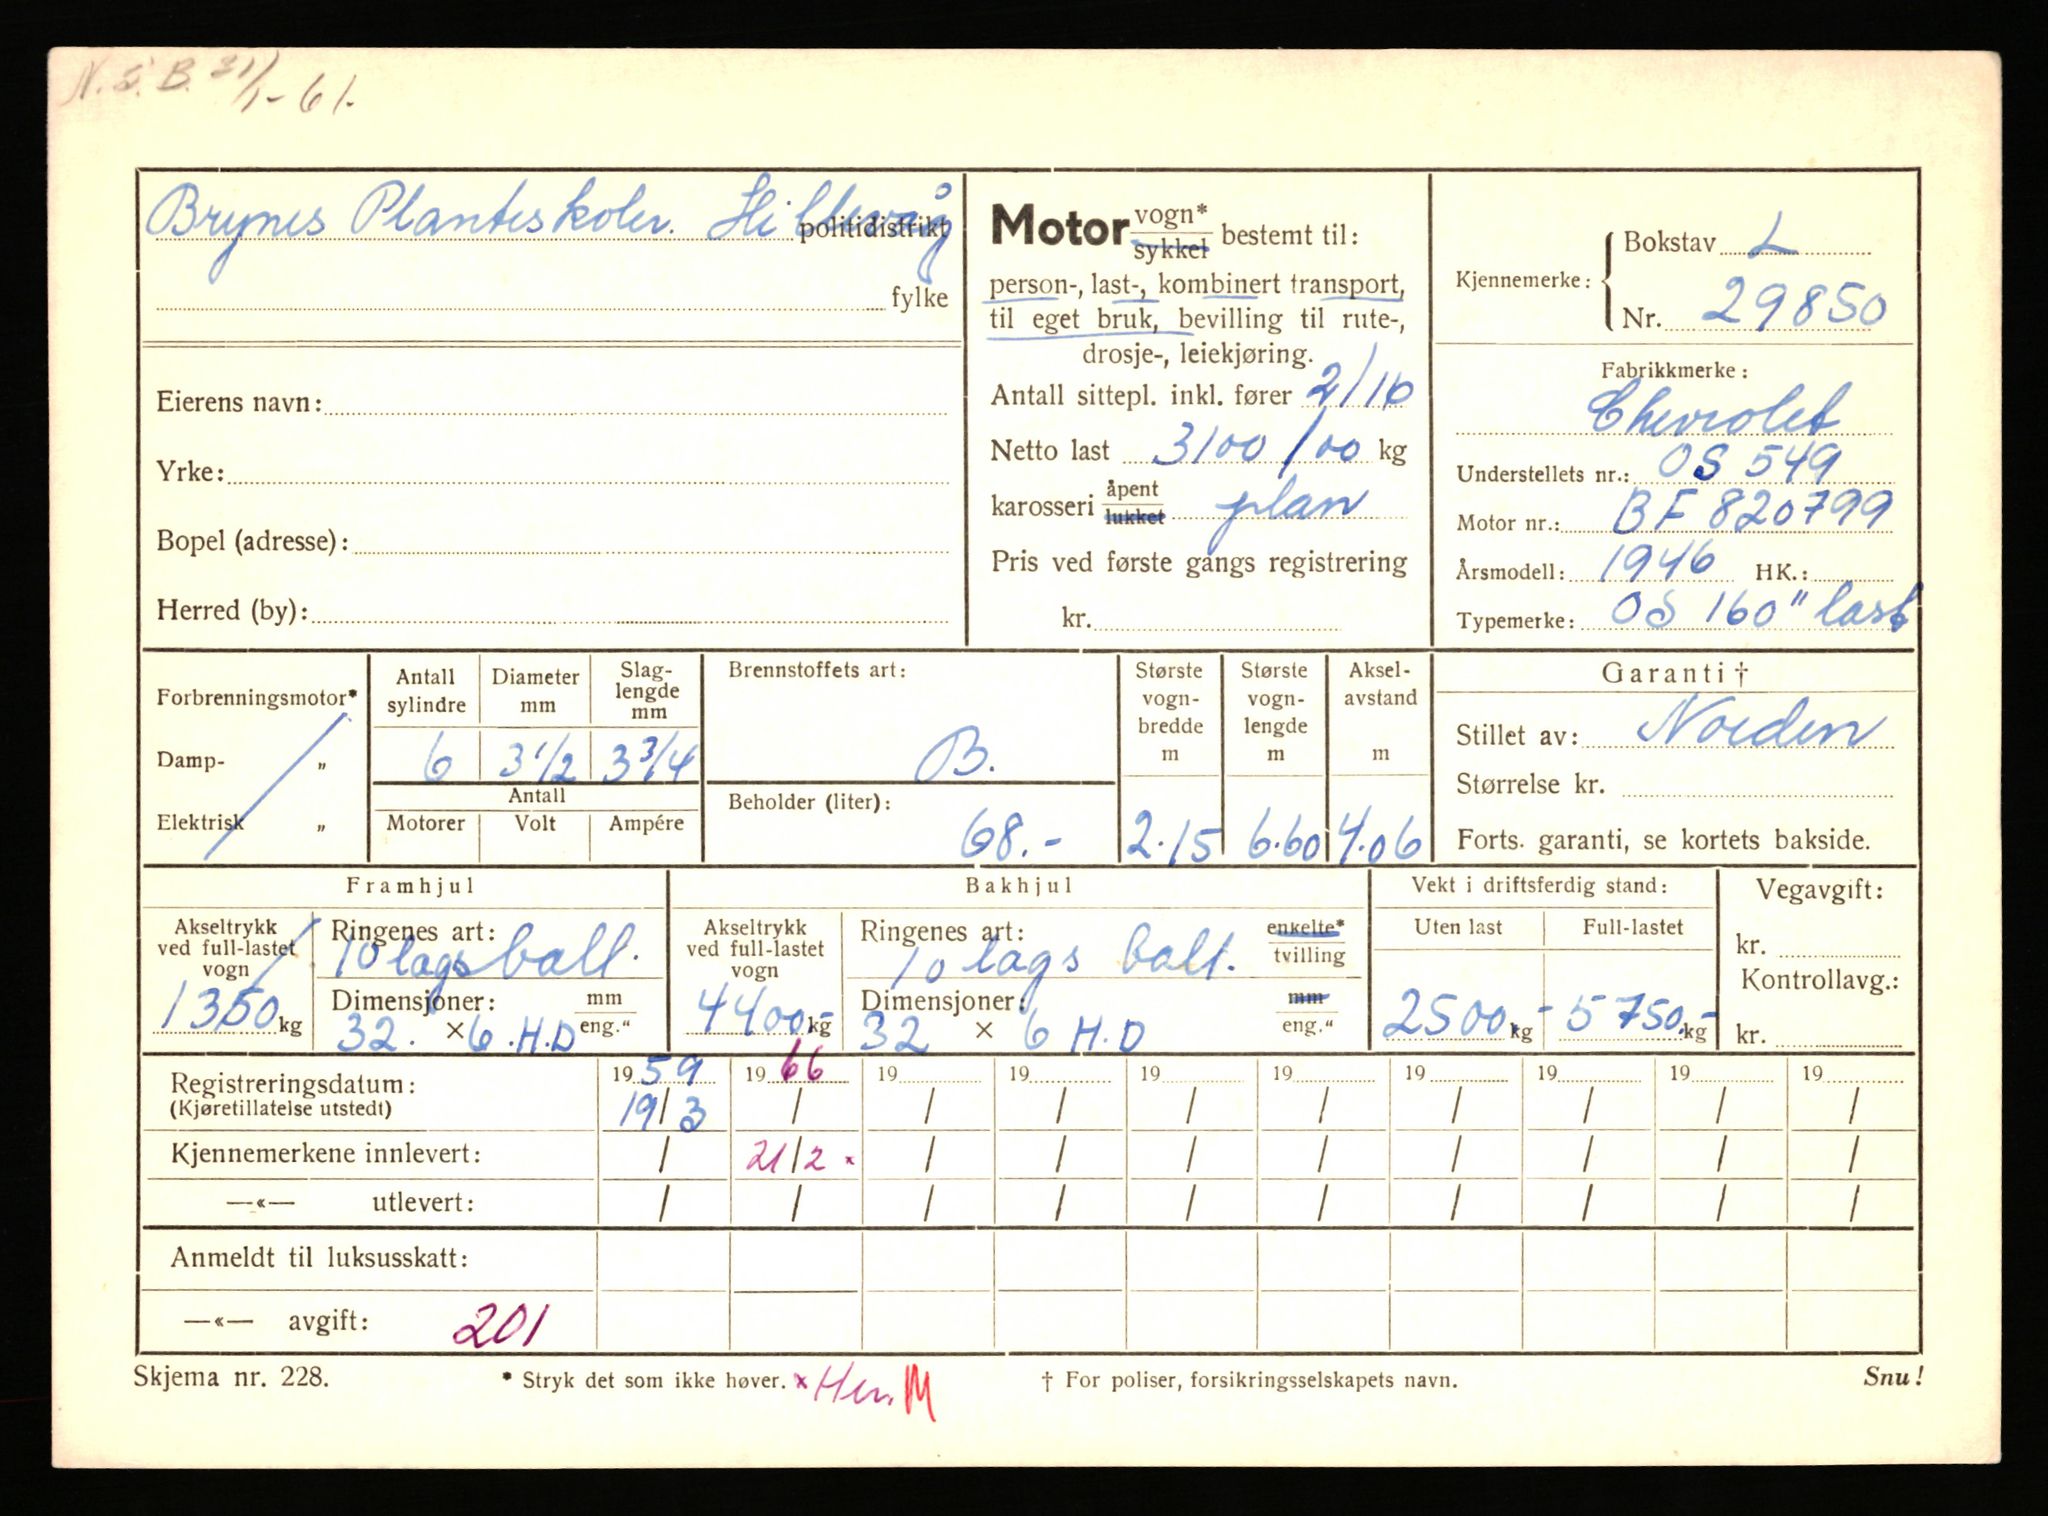 N.S.B. 31/1-61.
Brynes Planteskoler. Hillevåg politidistrikt
fylke
Eierens navn:
Yrke:
Bopel (adresse):
Herred (by):
Motor vogn* sykkel bestemt til:
person-, last-, kombinert transport,
til eget bruk, bevilling til rute-,
drosje-, leiekjøring.
Antall sittepl. inkl. fører 2/10
Netto last 3100/00 kg
karosseri åpent lukket plan
Pris ved første gangs registrering
kr.
Kjennemerke: Bokstav L
Nr. 29850
Fabrikkmerke:
Chevrolet
Understellets nr.: OS 549
Motor nr.: BF 820799
Årsmodell: 1946 HK.:
Typemerke: OS 160" last
Forbrenningsmotor*
Damp- "
Elektrisk "
Antall sylindre
Diameter mm
Slag-lengde mm
6 3 1/2 3 3/4
Antall
Motorer Volt Ampére
Brennstoffets art:
B.
Beholder (liter):
68.-
Største vogn-bredde m
2.15
Største vogn-lengde m
6.60
Aksel-avstand m
4.06
Garanti †
Stillet av: Norden
Størrelse kr.
Forts. garanti, se kortets bakside.
Framhjul
Akseltrykk ved full-lastet vogn
1350 kg
Ringenes art:
10 lags ball.
Dimensjoner: mm
32. × 6. H.D eng."
Bakhjul
Akseltrykk ved full-lastet vogn
4400,- kg
Ringenes art: enkelte*
10 lags ball. tvilling
Dimensjoner: mm
32 × 6 H.D eng."
Vekt i driftsferdig stand:
Uten last Full-lastet
2500,- kg 5750,- kg
Vegavgift:
kr.
Kontrollavg.:
kr.
Registreringsdatum: 1959 1966 19 19 19 19 19 19 19 19
(Kjøretillatelse utstedt) 19/3 / / / / / / / / /
Kjennemerkene innlevert: / 21/2 × / / / / / / / /
—«— utlevert: / / / / / / / / / /
Anmeldt til luksusskatt:
—«— avgift: 201
Skjema nr. 228. * Stryk det som ikke høver. × Hen. M † For poliser, forsikringsselskapets navn. Snu!